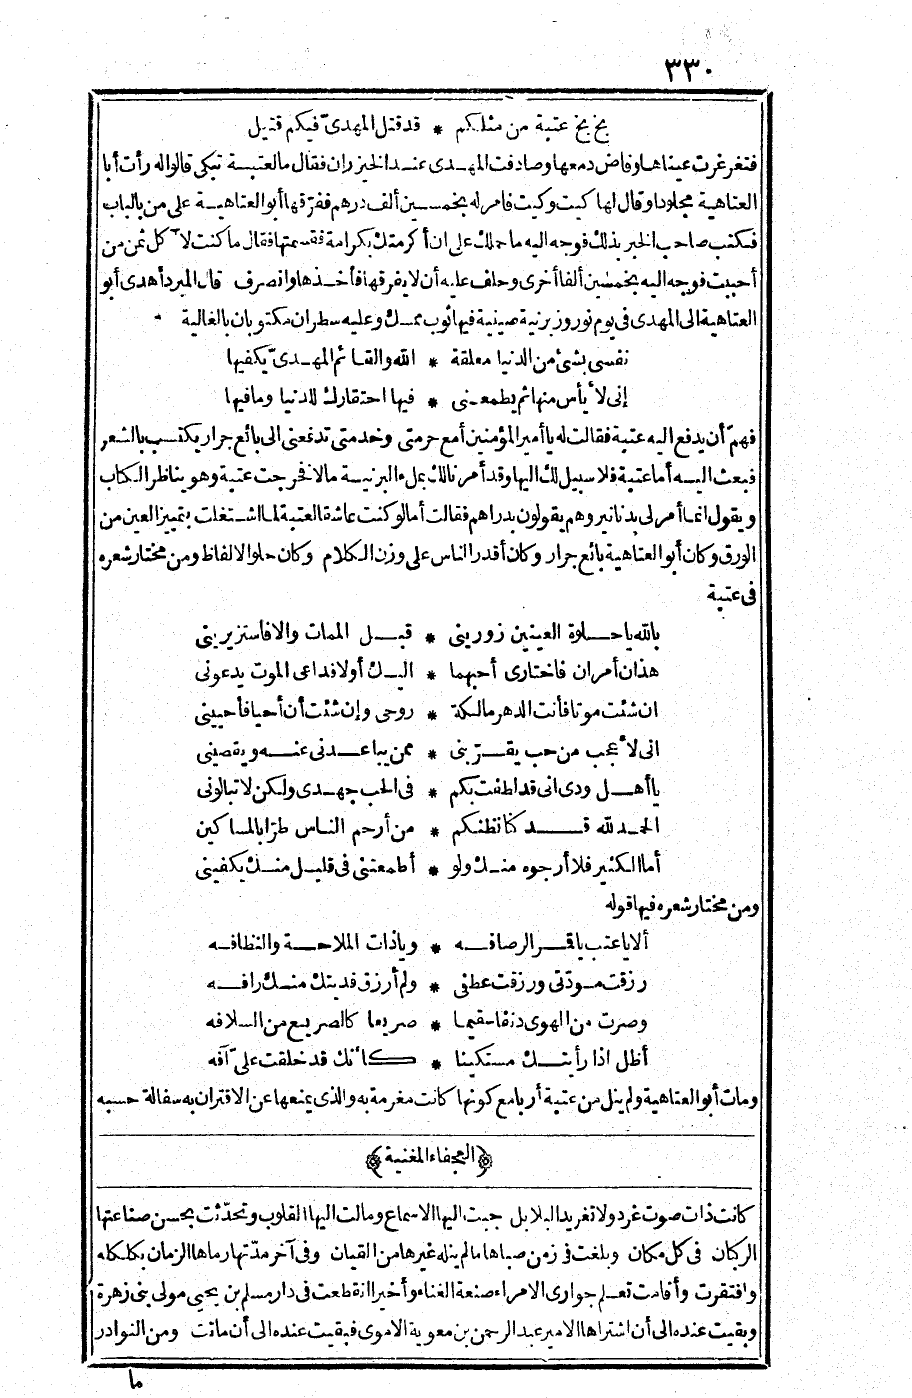 ٣٣٠
بخ بخ عتبة من مثلكم * قد قتل المهدىّ فيكم قتيل
فتغرغرت عيناها وفاض دمعها وصادفت المهدى عند الخيزران فقال مالعتبة تبكى قالوا له رأت أبا
العتاهية مجلودا وقال لها كيت وكيت فامر له بخمسين ألف درهم ففرّقها أبو العتاهية على من بالباب
فكتب صاحب الخبر بذلك فوجه اليه ما حملك على ان أكرمتك بكرامة فقسمتها فقال ما كنت لا ٓكل ثمن من
أحببت فوجه اليه بخمسين ألفا أخرى وحلف عليه أن لا يفرقها فأخذها وانصرف قال المبرد أهدى أبو
العتاهية الى المهدى فى يوم نوروز برنية صينية فيها ثوب ممسك وعليه سطران مكتوبان بالغالية
نفسى بشئ من الدنيا معلقة * الله والقائم المهدىّ يكفيها
إنى لأيأس منها ثم يطمعنى * فيها احتقارك للدنيا ومافيها
فهمّ أن يدفع اليه عتبة فقالت له يا أمير المؤمنين أمع حرمتى وخدمتى تدفعنى الى بائع جرار يكتسب بالشعر
فبعث اليه أما عتبة فلا سبيل لك اليها وقد أمرنا لك بملء البرنية مالا فخرجت عتبة وهو يناظر الكتاب
ويقول انما أمر لى بدنانير وهم يقولون بدراهم فقالت أما لو كنت عاشقا لعتبة لما اشتغلت بتمييز العين من
الورق وكان أبو العتاهية بائع جرار وكان أقدر الناس على وزن الكلام وكان حلو الالفاظ ومن مختار شعره
فى عتبة
بالله يا حلوة العينين زورينى * قبل الممات والا فاستزيرينى
هذان أمران فاختارى أحبهما * اليك أولا فداعى الموت يدعونى
ان شئت موتا فأنت الدهر مالكة * روحى وإن شئت أن أحيا فأحيينى
انى لأعجب من حب يقرّبنى * ممن يباعدنى عنه ويقصينى
يا أهل ودى انى قد لطفت بكم * فى الحب جهدى ولكن لا تبالونى
الحمد لله قد كنا نظنكم * من أرحم الناس طرّا بالمساكين
أما الكثير فلا أرجوه منك ولو * أطمعتنى فى قليل منك يكفينى
ومن مختار شعره فيها قوله
ألا يا عتب يا قمر الرصافه * وياذات الملاحة والنظافه
رزقت مودّتى ورزقت عطفى * ولم أرزق فديتك منك رافه
وصرت من الهوى دنفا سقيما * صريعا كالصريع من السلافه
أظل اذا رأيتك مستكينا * كأنك قد خلقت علىّ آفه
ومات أبو العتاهية ولم ينل من عتبة أربا مع كونها كانت مغرمة به والذى يمنعها عن الاقتران به سفالة حسبه
﴿العجفاء المغنية﴾
كانت ذات صوت غرد ولا تغريد البلابل جبت اليها الاسماع ومالت اليها القلوب وتحدّثت بحسن صناعتها
الركبان فى كل مكان وبلغت فى زمن صباها ما لم ينله غيرها من القيان وفى آخر مدّتها رماها الزمان بكلكله
وافتقرت وأقامت تعلم جوارى الامراء صنعة الغناء وأخيرا انقطعت فى دار مسلم بن يحيى مولى بنى زهرة
وبقيت عنده الى أن اشتراها الامير عبد الرحمن بن معوية الاموى فبقيت عنده الى أن ماتت ومن النوادر
ما